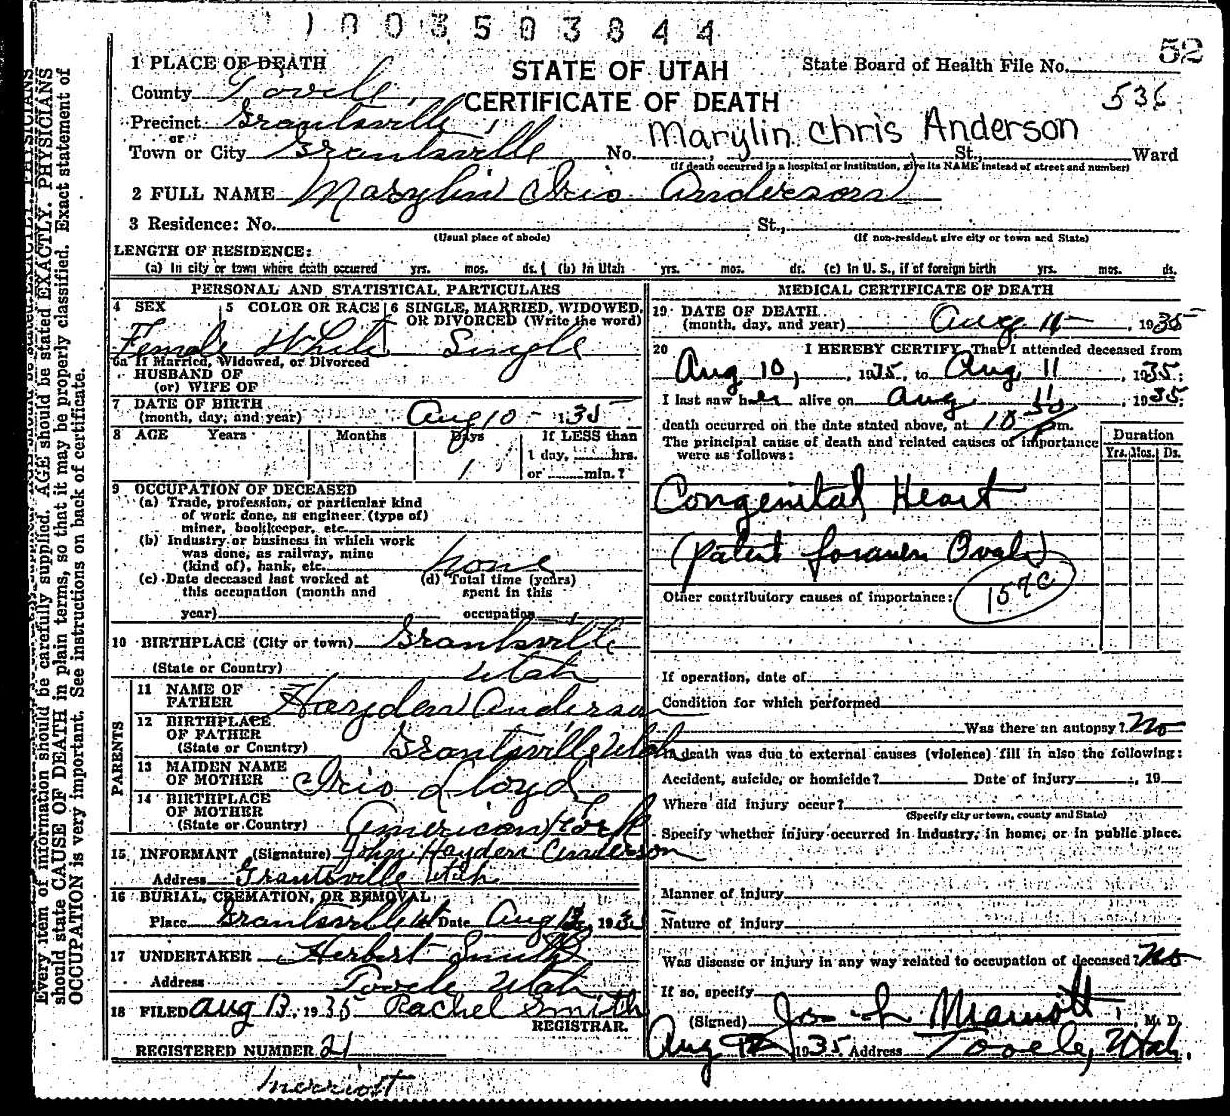 1003503844
52
1 PLACE OF DEATH
STATE OF UTAH
State Board of Health File No.
County Tooele
CERTIFICATE OF DEATH
536
Precinct Grantsville
or
Marylin Chris Anderson
Town or City Grantsville No. St., Ward
(If death occurred in a hospital or institution, give its NAME instead of street and number)
2 FULL NAME Marylin Iris Anderson
3 Residence: No. St.,
(Usual place of abode) (If non-resident give city or town and State)
LENGTH OF RESIDENCE:
(a) In city or town where death occurred yrs. mos. ds. (b) In Utah yrs. mos. ds. (c) In U. S., if of foreign birth yrs. mos. ds.
PERSONAL AND STATISTICAL PARTICULARS
4 SEX 5 COLOR OR RACE 6 SINGLE, MARRIED, WIDOWED,
OR DIVORCED (Write the word)
Female White Single
6a If Married, Widowed, or Divorced
HUSBAND OF
(or) WIFE OF
7 DATE OF BIRTH
(month, day, and year) Aug 10 - 1935
8 AGE Years Months Days If LESS than
1 1 day, hrs.
or min.?
9 OCCUPATION OF DECEASED
(a) Trade, profession, or particular kind
of work done, as engineer (type of)
miner, bookkeeper, etc.
(b) Industry or business in which work
was done, as railway, mine
(kind of), bank, etc. none
(c) Date deceased last worked at (d) Total time (years)
this occupation (month and spent in this
year) occupation
10 BIRTHPLACE (City or town) Grantsville
(State or Country) Utah
PARENTS
11 NAME OF
FATHER Hayden Anderson
12 BIRTHPLACE
OF FATHER
(State or Country) Grantsville, Utah
13 MAIDEN NAME
OF MOTHER Iris Lloyd
14 BIRTHPLACE
OF MOTHER
(State or Country) American Fork
15 INFORMANT (Signature) John Hayden Anderson
Address Grantsville Utah
16 BURIAL, CREMATION, OR REMOVAL
Place Grantsville Ut Date Aug 12, 193
17 UNDERTAKER Herbert Smith
Address Tooele Utah
18 FILED Aug 13, 1935 Rachel Smith
REGISTRAR.
REGISTERED NUMBER 21
Merriott
MEDICAL CERTIFICATE OF DEATH
19 DATE OF DEATH
(month, day, and year) Aug 11 - , 1935
20 I HEREBY CERTIFY, That I attended deceased from
Aug 10, , 1935, to Aug 11 , 1935.
I last saw her alive on Aug 11 , 1935.
death occurred on the date stated above, at 10 50 Pm.
The principal cause of death and related causes of importance
were as follows:
Duration
Yrs. Mos. Ds.
Congenital Heart
(Patent foramen Ovale)
Other contributory causes of importance: 157C
If operation, date of
Condition for which performed
Was there an autopsy? No
If death was due to external causes (violence) fill in also the following:
Accident, suicide, or homicide? Date of injury , 19
Where did injury occur?
(Specify city or town, county and State)
Specify whether injury occurred in industry, in home, or in public place.
Manner of injury
Nature of injury
Was disease or injury in any way related to occupation of deceased? No
If so, specify
(Signed) Jos. H. Marriott, M. D.
Aug 12 1935 Address Tooele, Utah.
Every item of information should be carefully supplied. AGE should be stated EXACTLY. PHYSICIANS
should state CAUSE OF DEATH in plain terms, so that it may be properly classified. Exact statement of
OCCUPATION is very important. See instructions on back of certificate.